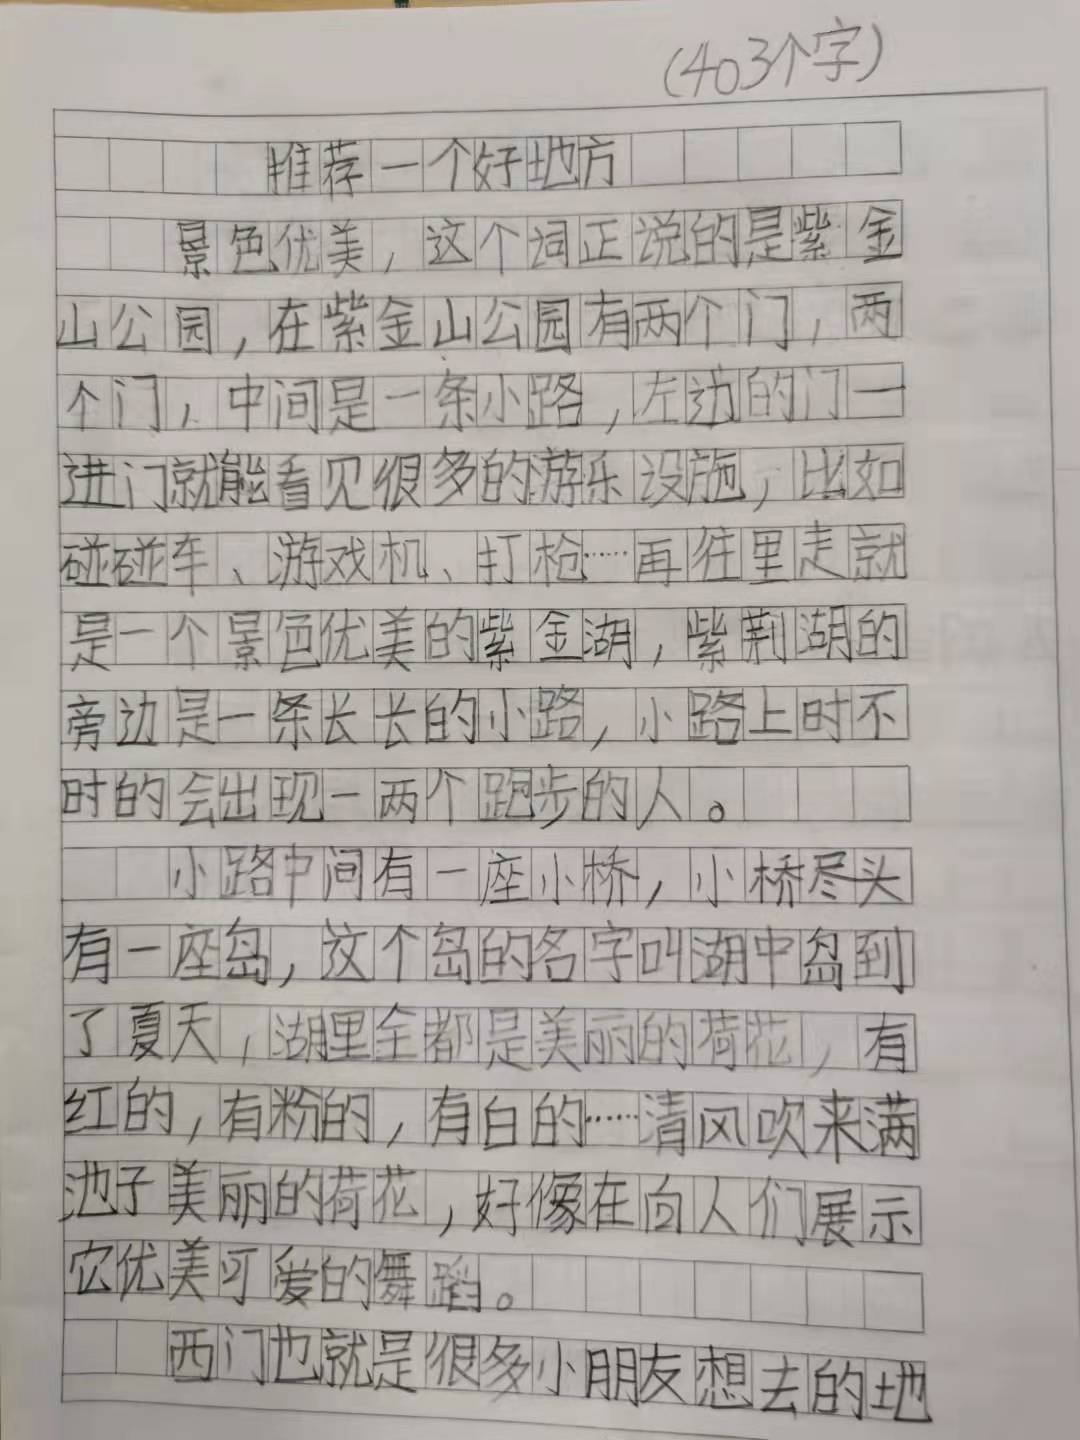 (403个字)
推荐一个好地方
景色优美，这个词正说的是紫金
山公园，在紫金山公园有两个门，两
个门，中间是一条小路，左边的门一
进门就能看见很多的游乐设施，比如
碰碰车、游戏机、打枪……再往里走就
是一个景色优美的紫金湖，紫荆湖的
旁边是一条长长的小路，小路上时不
时的会出现一两个跑步的人。
小路中间有一座小桥，小桥尽头
有一座岛，这个岛的名字叫湖中岛到
了夏天，湖里全都是美丽的荷花，有
红的，有粉的，有白的……清风吹来满
池子美丽的荷花，好像在向人们展示
它优美可爱的舞蹈。
西门也就是很多小朋友想去的地